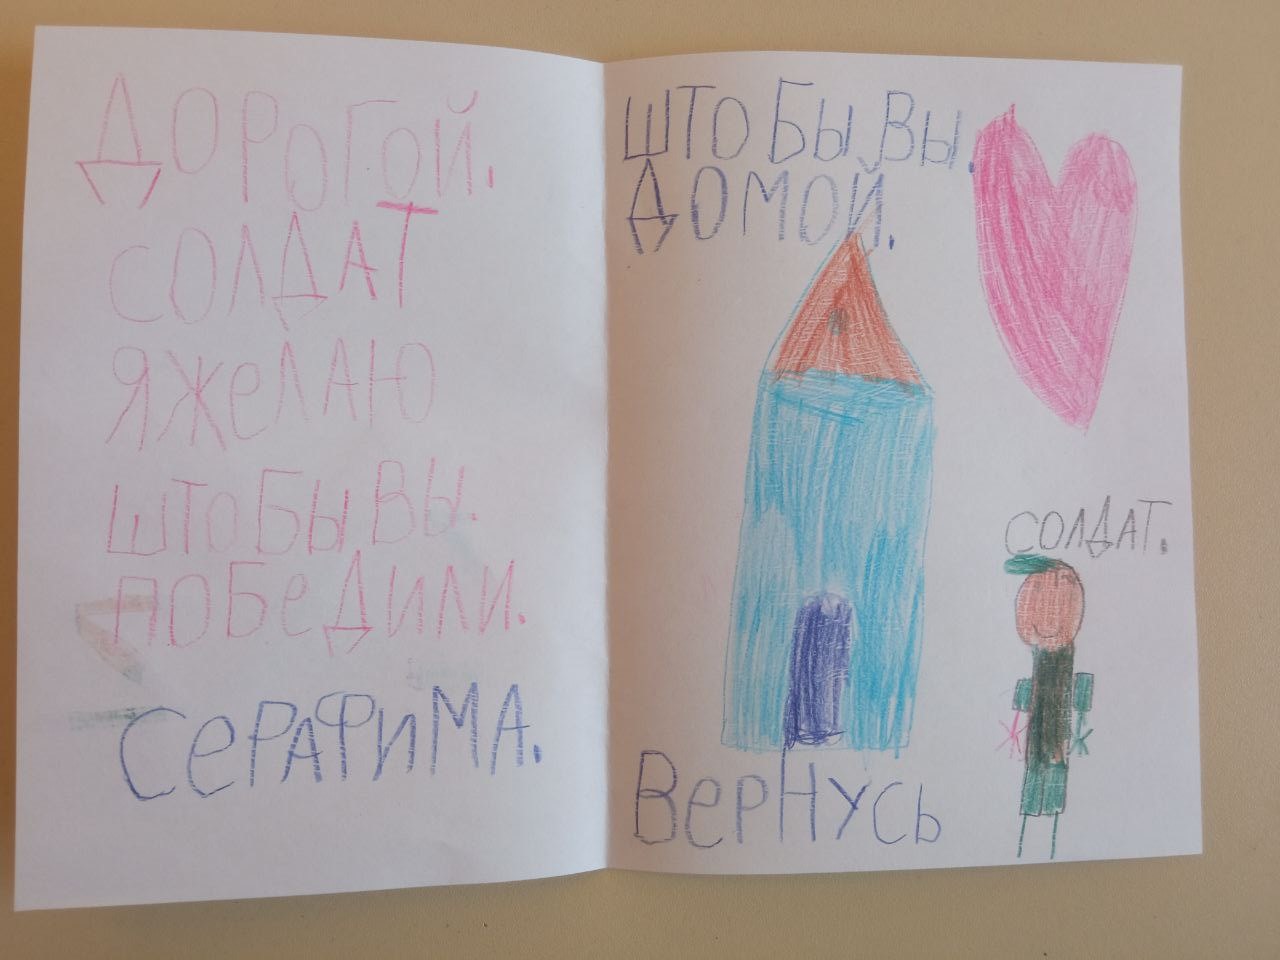 ДОРОГОЙ.
СОЛДАТ
Я ЖеЛАЮ
ШТО БЫ ВЫ.
ПОБеДИЛИ.
СеРАФИМА.
ШТО БЫ ВЫ.
ДОМОЙ.
СОЛДАТ.
ВерНУСЬ